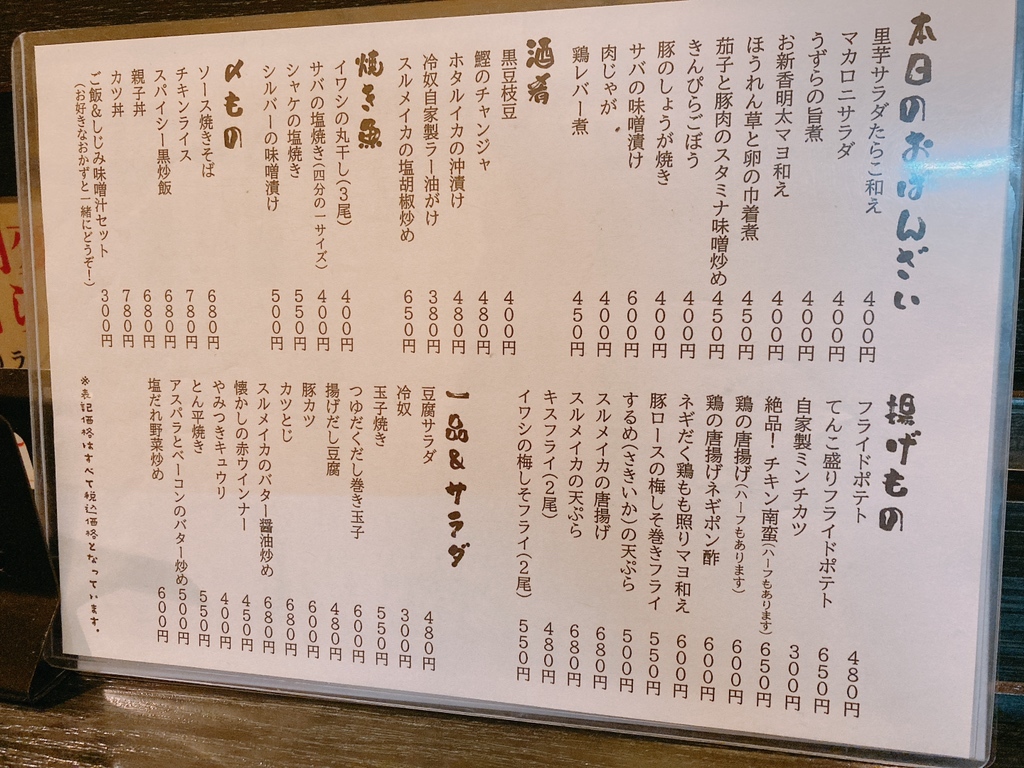 本日のおばんざい
里芋サラダたらこ和え 400円
マカロニサラダ 400円
うずらの旨煮 400円
お新香明太マヨ和え 400円
ほうれん草と卵の巾着煮 450円
茄子と豚肉のスタミナ味噌炒め 450円
きんぴらごぼう 400円
豚のしょうが焼き 400円
サバの味噌漬け 600円
肉じゃが 400円
鶏レバー煮 450円
酒肴
黒豆枝豆 400円
鰹のチャンジャ 480円
ホタルイカの沖漬け 480円
冷奴自家製ラー油がけ 380円
スルメイカの塩胡椒炒め 650円
焼き魚
イワシの丸干し(3尾) 400円
サバの塩焼き(四分の一サイズ) 400円
シャケの塩焼き 550円
シルバーの味噌漬け 500円
〆もの
ソース焼きそば 680円
チキンライス 780円
スパイシー黒炒飯 680円
親子丼 680円
カツ丼 780円
ご飯&しじみ味噌汁セット 300円
(お好きなおかずと一緒にどうぞ!)
揚げもの
フライドポテト 480円
てんこ盛りフライドポテト 650円
自家製ミンチカツ 300円
絶品!チキン南蛮(ハーフもあります) 650円
鶏の唐揚げ(ハーフもあります) 600円
鶏の唐揚げネギポン酢 600円
ネギだく鶏もも照りマヨ和え 600円
豚ロースの梅しそ巻きフライ 550円
するめ(さきいか)の天ぷら 500円
スルメイカの唐揚げ 680円
スルメイカの天ぷら 680円
キスフライ(2尾) 480円
イワシの梅しそフライ(2尾) 550円
一品&サラダ
豆腐サラダ 480円
冷奴 300円
玉子焼き 550円
つゆだくだし巻き玉子 600円
揚げだし豆腐 480円
豚カツ 600円
カツとじ 680円
スルメイカのバター醤油炒め 680円
懐かしの赤ウインナー 450円
やみつきキュウリ 400円
とん平焼き 550円
アスパラとベーコンのバター炒め 500円
塩だれ野菜炒め 600円
※表記価格はすべて税込価格となっています。